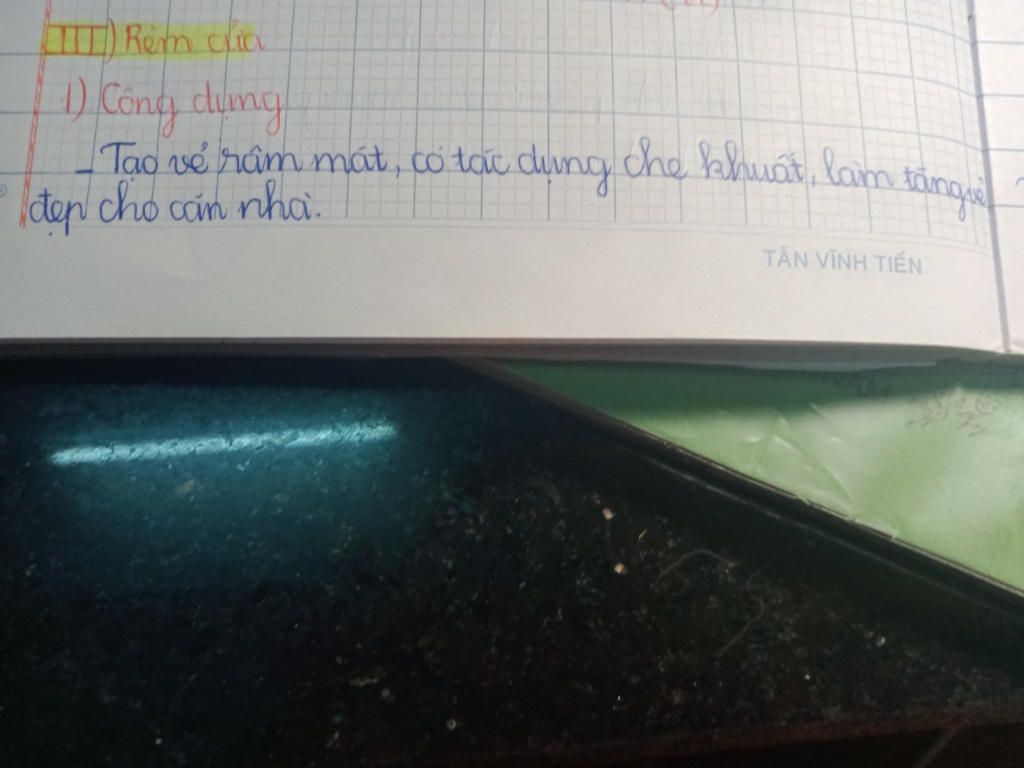 III) Rèm cửa
1) Công dụng
- Tạo vẻ râm mát, có tác dụng che khuất, làm tăng vẻ
đẹp cho căn nhà.
TÂN VĨNH TIẾN
NAM